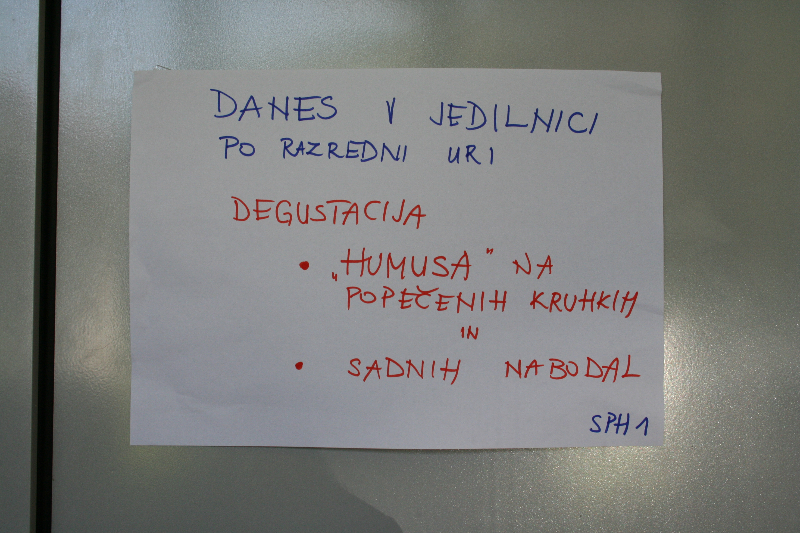 DANES V JEDILNICI
PO RAZREDNI URI
DEGUSTACIJA
• „HUMUSA” NA
POPEČENIH KRUHKIH
IN
• SADNIH NABODAL
SPH1